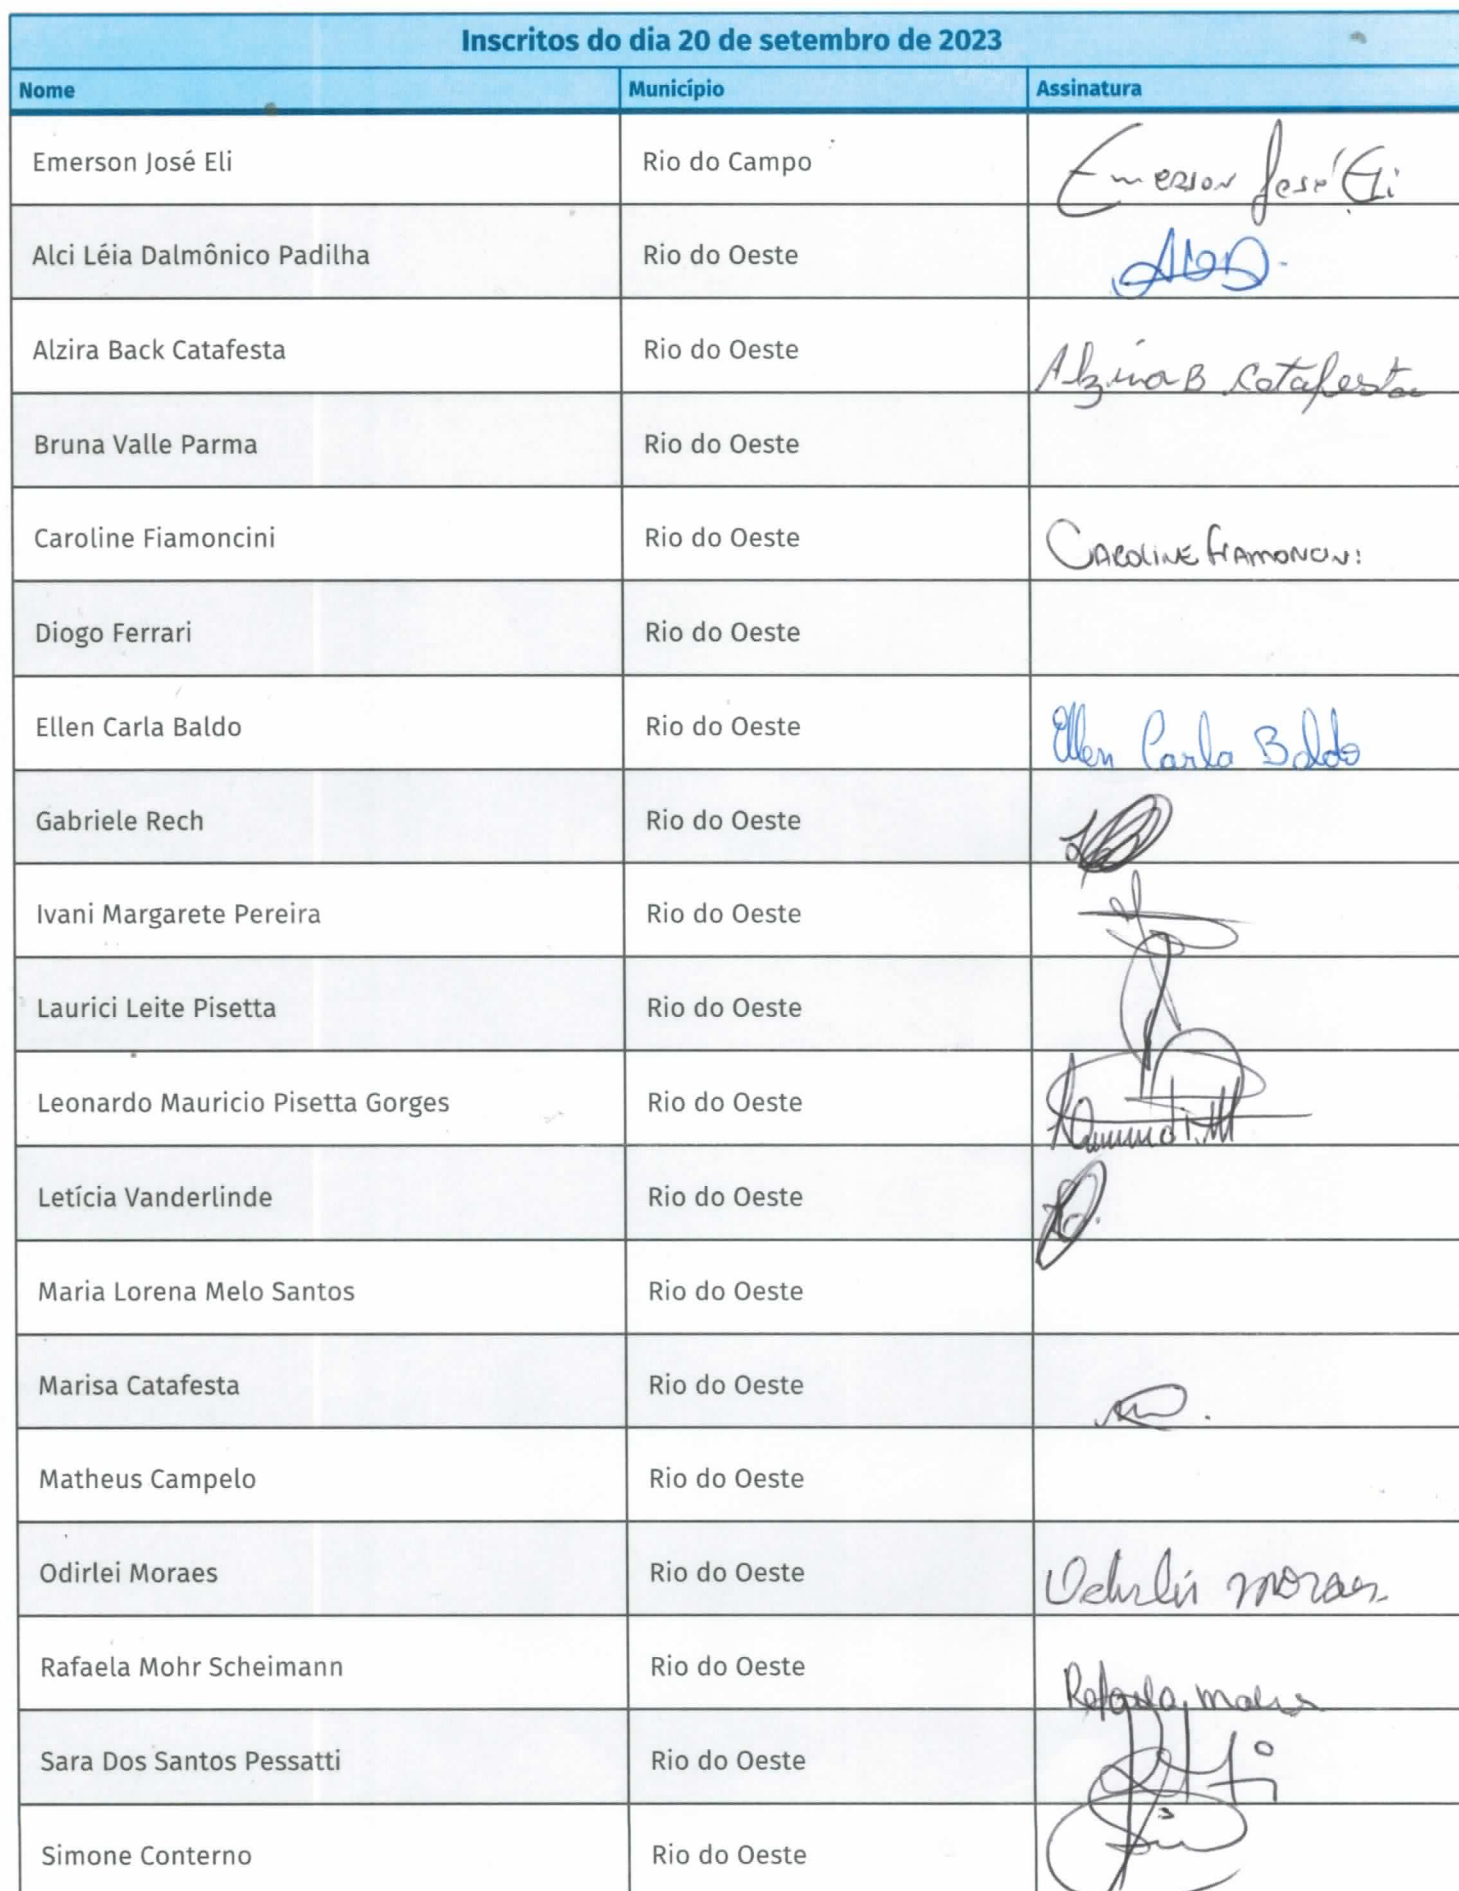 Inscritos do dia 20 de setembro de 2023
Nome Município Assinatura
Emerson José Eli Rio do Campo Emerson José Eli
Alci Léia Dalmônico Padilha Rio do Oeste
Alzira Back Catafesta Rio do Oeste Alzira B Catafesta
Bruna Valle Parma Rio do Oeste
Caroline Fiamoncini Rio do Oeste CAROLINE FIAMONCINI
Diogo Ferrari Rio do Oeste
Ellen Carla Baldo Rio do Oeste Ellen Carla Baldo
Gabriele Rech Rio do Oeste
Ivani Margarete Pereira Rio do Oeste
Laurici Leite Pisetta Rio do Oeste
Leonardo Mauricio Pisetta Gorges Rio do Oeste
Letícia Vanderlinde Rio do Oeste
Maria Lorena Melo Santos Rio do Oeste
Marisa Catafesta Rio do Oeste
Matheus Campelo Rio do Oeste
Odirlei Moraes Rio do Oeste Odirlei Moraes
Rafaela Mohr Scheimann Rio do Oeste Rafaela
Sara Dos Santos Pessatti Rio do Oeste
Simone Conterno Rio do Oeste